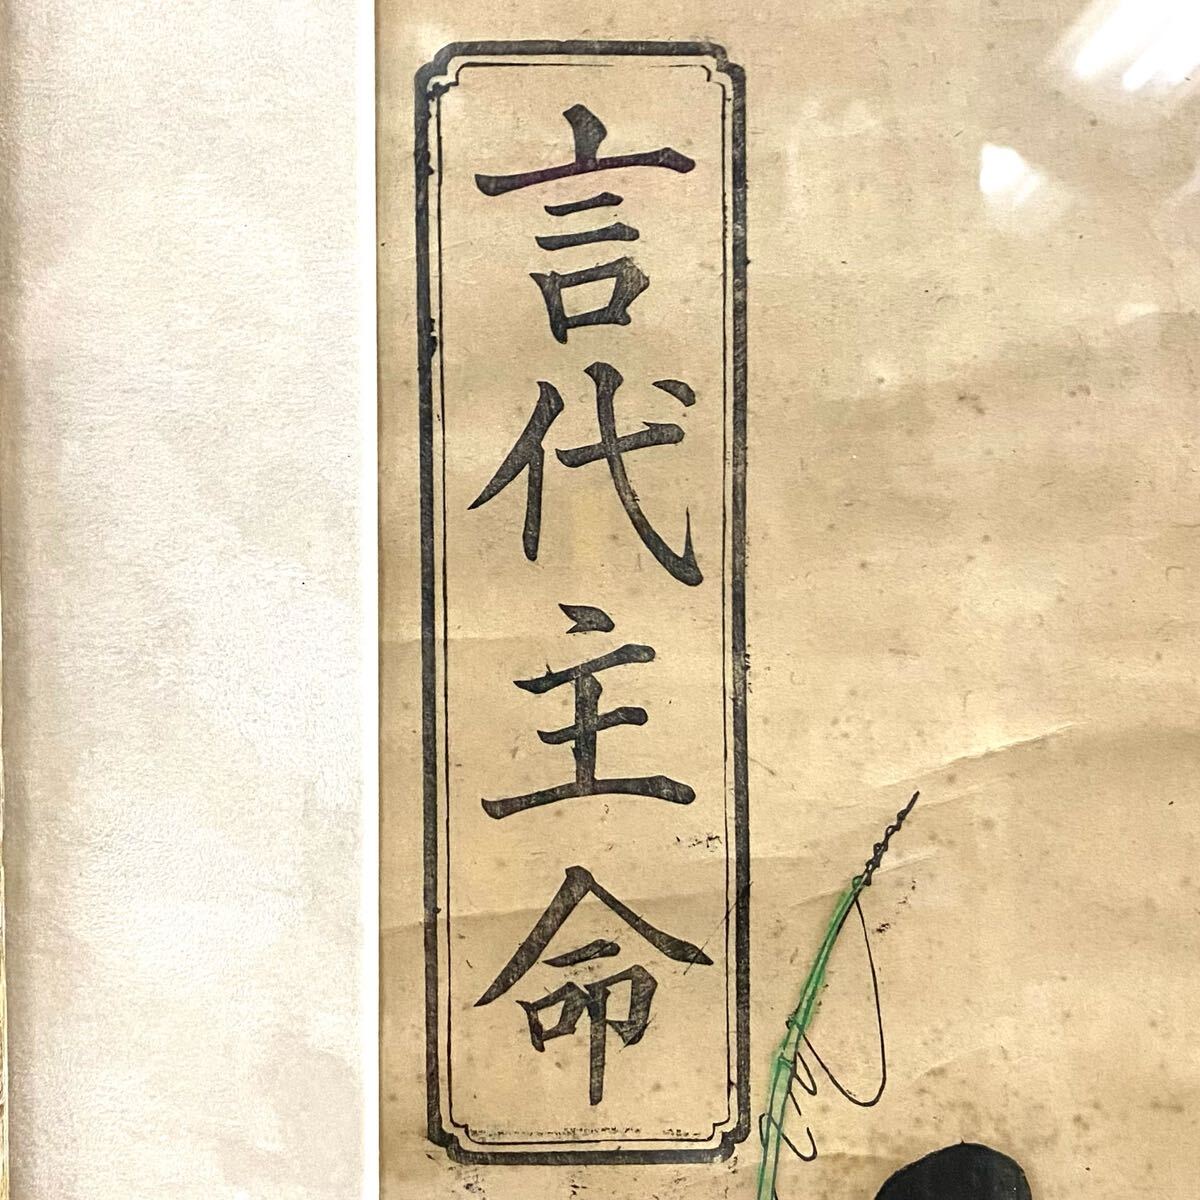 言代主命